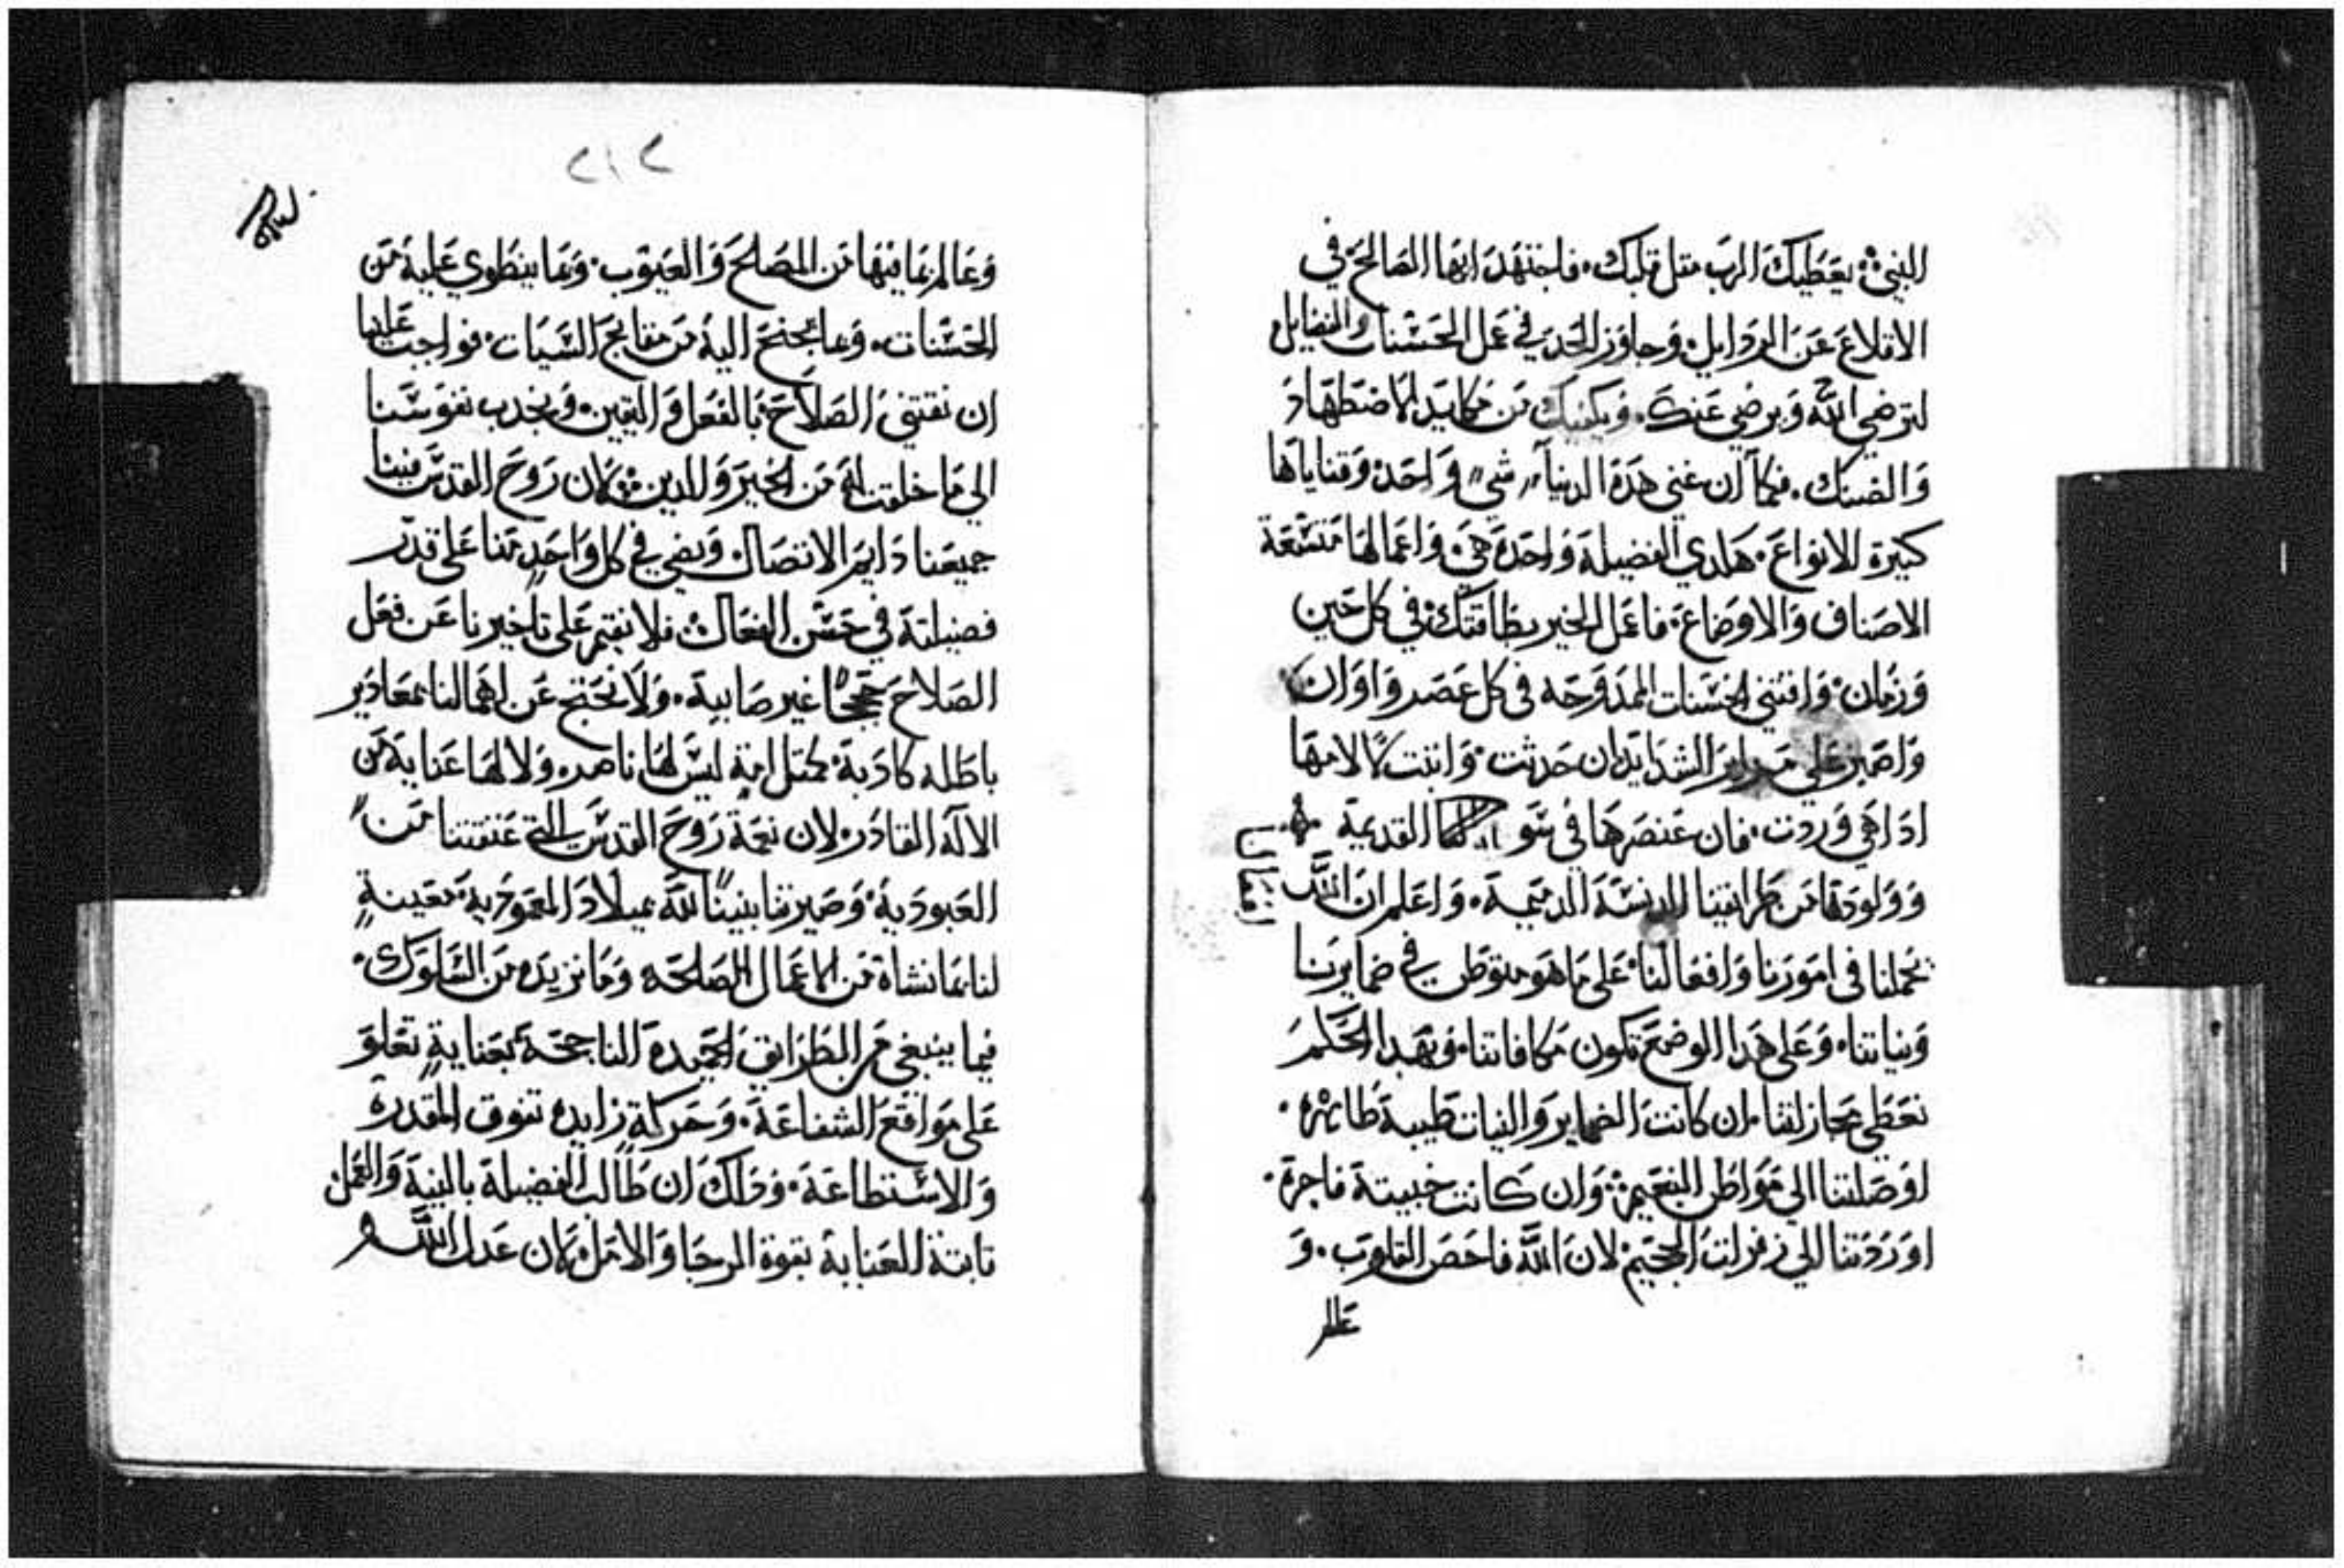 النبي يعطيك الرب متل قلبك فاجتهد ايها الصالح في
الاقلاع عن الردايل وجاوز الحد في عمل الحسنات والفضايل
لترضي الله ويرضي عنك ويكفيك من مكايد الاضطهاد
والضنك فكما ان غني هده الدنيا شي واحد وقناياها
كتيرة الانواع هكدي الفضيلة واحدة هي واعمالها متسعة
الاصناف والاوضاع فاعمل الخير بطاقتك في كل حين
وزمان واقتني الحسنات الممدوحه في كل عصر واوان
واصبر علي مراير الشدايد ان حدثت واتبت لالامها
ادا هي وردت فان عنصرها في القديمة
وولودها من طرايقنا الدنسة الدميمة واعلم ان الله
يحملنا في امورنا وافعالنا علي ما هو متوطن في ضمايرنا
ونياتنا وعلي هدا الوضع تكون مكافاتنا وبهدا الحكم
تعطي مجازاتنا ان كانت الضماير والنيات طيبة طاهره
اوصلتنا الي مواطن النعيم وان كانت خبيتة فاجرة
اوردتنا الي زفرات الجحيم لان الله فاحص القلوب و
عالم
٢١٢
وعالم بما فيها من المصالح والعيوب وبما ينطوي عليه من
الحسنات وما يجنح اليه من مقابح السيات فواجب علينا
ان نقتني الصلاح بالفعل واليقين ونجدب نفوسنا
الي ما خلقت له من الخير والدين فكان روح القدس فينا
جميعنا دايم الاتصال ويضي في كل واحد منا علي قدر
فضيلته في حسن الفعال فلا نقيم علي تاخيرنا عن فعل
الصلاح حججًا غير صايبة ولا نحتج عن اهمالنا بمعادير
باطله كادبة كمتل امة ليس لها ناصر ولا لها عناية من
الاله القادر لان نعمة روح القدس التي عتقتنا من
العبودية وصيرتنا بنينًا لله بميلاد المعمودية معينةٍ
لنا بما نشاة من الاعمال الصالحه وما نريده من السلوك
فيما ينبغي من الطرايق الحميدة الناجحة بعنايةٍ تعلو
علي مواقع الشفاعة وحركةٍ زايده تفوق المقدرة
والاستطاعة ودلك ان طالب الفضيلة بالنية والعمل
تابتة العناية بقوة الرجا والامل كان عدل الله